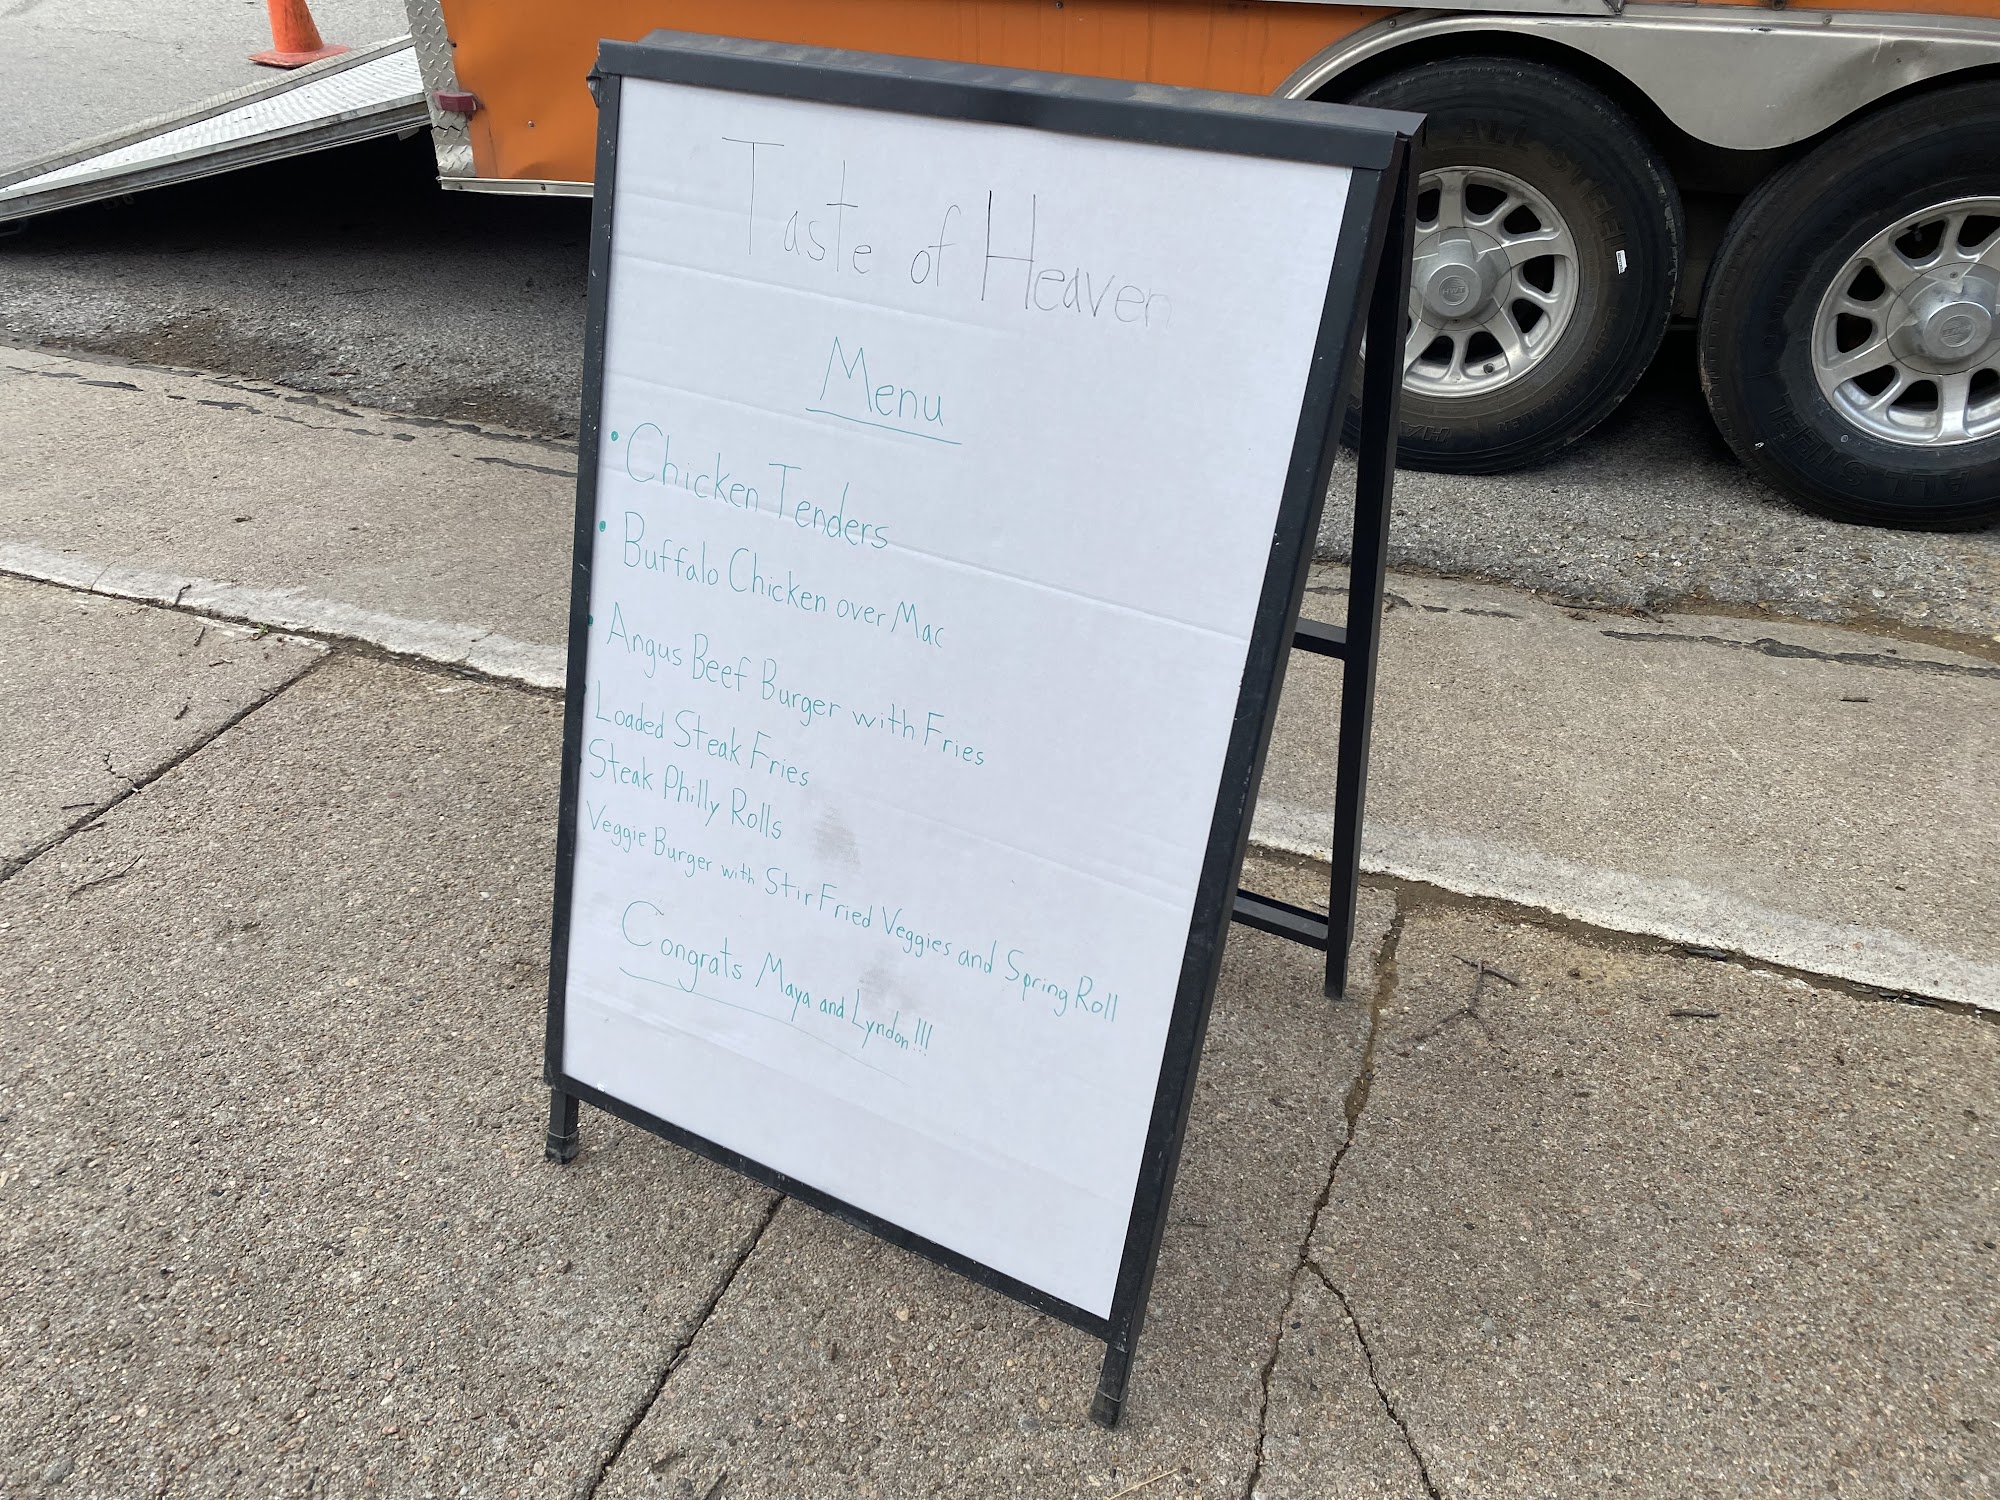 Taste of Heaven
Menu
• Chicken Tenders
• Buffalo Chicken over Mac
• Angus Beef Burger with Fries
Loaded Steak Fries
Steak Philly Rolls
Veggie Burger with Stir Fried Veggies and Spring Roll
Congrats Maya and Lyndon!!!